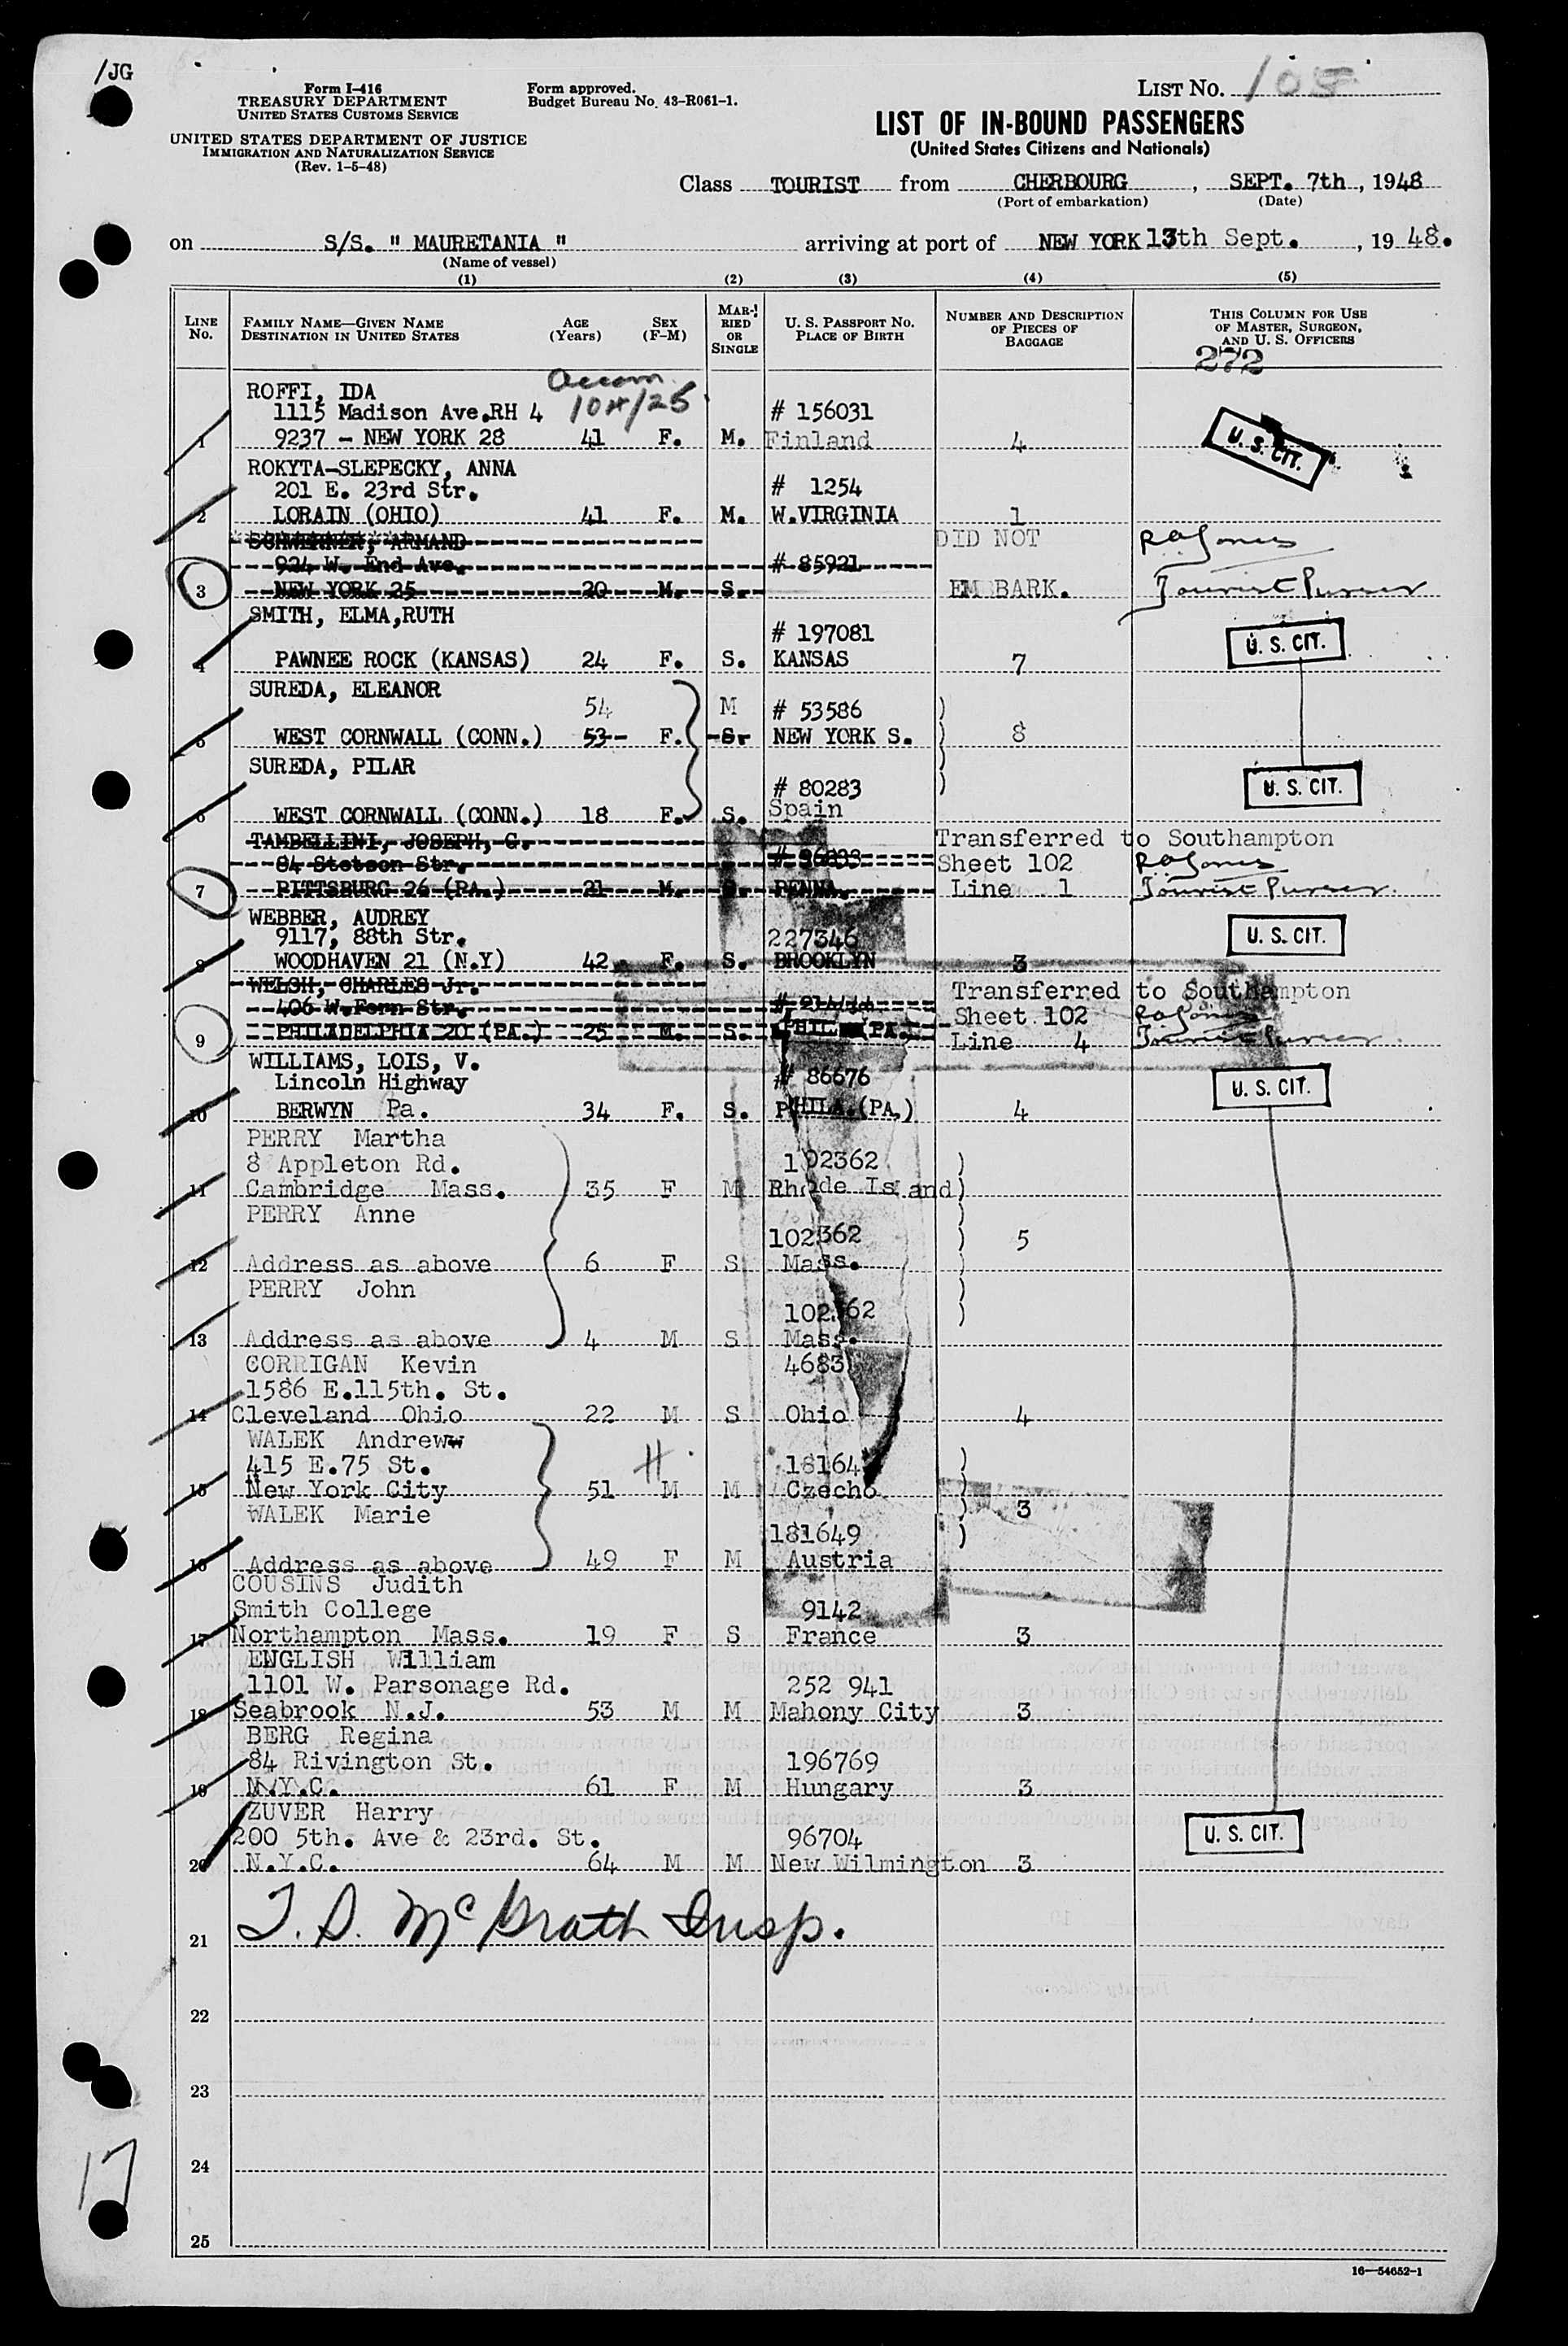 /JG
Form I-416
TREASURY DEPARTMENT
UNITED STATES CUSTOMS SERVICE
UNITED STATES DEPARTMENT OF JUSTICE
IMMIGRATION AND NATURALIZATION SERVICE
(Rev. 1-5-48)
Form approved.
Budget Bureau No. 43-R061-1.
LIST No. 105
LIST OF IN-BOUND PASSENGERS
(United States Citizens and Nationals)
Class TOURIST from CHERBOURG, SEPT. 7th, 1948
(Port of embarkation) (Date)
on S/S. " MAURETANIA " arriving at port of NEW YORK 13th Sept., 19 48.
(Name of vessel)
(1) (2) (3) (4) (5)
LINE No. FAMILY NAME—GIVEN NAME DESTINATION IN UNITED STATES AGE (Years) SEX (F-M) MARRIED OR SINGLE U. S. PASSPORT No. PLACE OF BIRTH NUMBER AND DESCRIPTION OF PIECES OF BAGGAGE THIS COLUMN FOR USE OF MASTER, SURGEON, AND U. S. OFFICERS
272
ROFFI, IDA accom
1115 Madison Ave.RH 4 # 156031
1 9237 - NEW YORK 28 41 F. M. Finland 4 U. S. CIT.
ROKYTA-SLEPECKY, ANNA
201 E. 23rd Str. # 1254
2 LORAIN (OHIO) 41 F. M. W.VIRGINIA 1
SCHWERNER, ARMAND DID NOT
924 W. End Ave. # 85921
3 NEW YORK 25 20 M. S. EMBARK. Tourist Purser
SMITH, ELMA,RUTH
# 197081 U. S. CIT.
4 PAWNEE ROCK (KANSAS) 24 F. S. KANSAS 7
SUREDA, ELEANOR
54 M # 53586
5 WEST CORNWALL (CONN.) 53 F. S. NEW YORK S. 8
SUREDA, PILAR
# 80283 U. S. CIT.
6 WEST CORNWALL (CONN.) 18 F. S. Spain
TAMBELLINI, JOSEPH, G. Transferred to Southampton
84 Stetson Str. Sheet 102
7 PITTSBURG 26 (PA.) 21 M. PENNA. Line 1 Tourist Purser
WEBBER, AUDREY
9117, 88th Str. 227346 U. S. CIT.
8 WOODHAVEN 21 (N.Y) 42 F. S. BROOKLYN 3
WELSH, CHARLES Jr. Transferred to Southampton
406 W.Fern Str. Sheet 102
9 PHILADELPHIA 20 (PA.) 25 M. S. PHIL (PA.) Line 4 Tourist Purser
WILLIAMS, LOIS, V.
Lincoln Highway # 86676 U. S. CIT.
10 BERWYN Pa. 34 F. S. PHILA.(PA.) 4
PERRY Martha
8 Appleton Rd. 102362
11 Cambridge Mass. 35 F M Rhode Island
PERRY Anne
102362 5
12 Address as above 6 F S Mass.
PERRY John
102362
13 Address as above 4 M S Mass.
CORRIGAN Kevin 4683
1586 E.115th. St.
14 Cleveland Ohio 22 M S Ohio 4
WALEK Andreww
415 E.75 St. 18164
15 New York City 51 M M Czecho
WALEK Marie 3
181649
16 Address as above 49 F M Austria
COUSINS Judith
Smith College 9142
17 Northampton Mass. 19 F S France 3
ENGLISH William
1101 W. Parsonage Rd. 252 941
18 Seabrook N.J. 53 M M Mahony City 3
BERG Regina
84 Rivington St. 196769
19 N.Y.C. 61 F M Hungary 3
ZUVER Harry
200 5th. Ave & 23rd. St. 96704 U. S. CIT.
20 N.Y.C. 64 M M New Wilmington 3
21 T. S. McGrath Insp.
22
23
24
17
25
16—54652-1